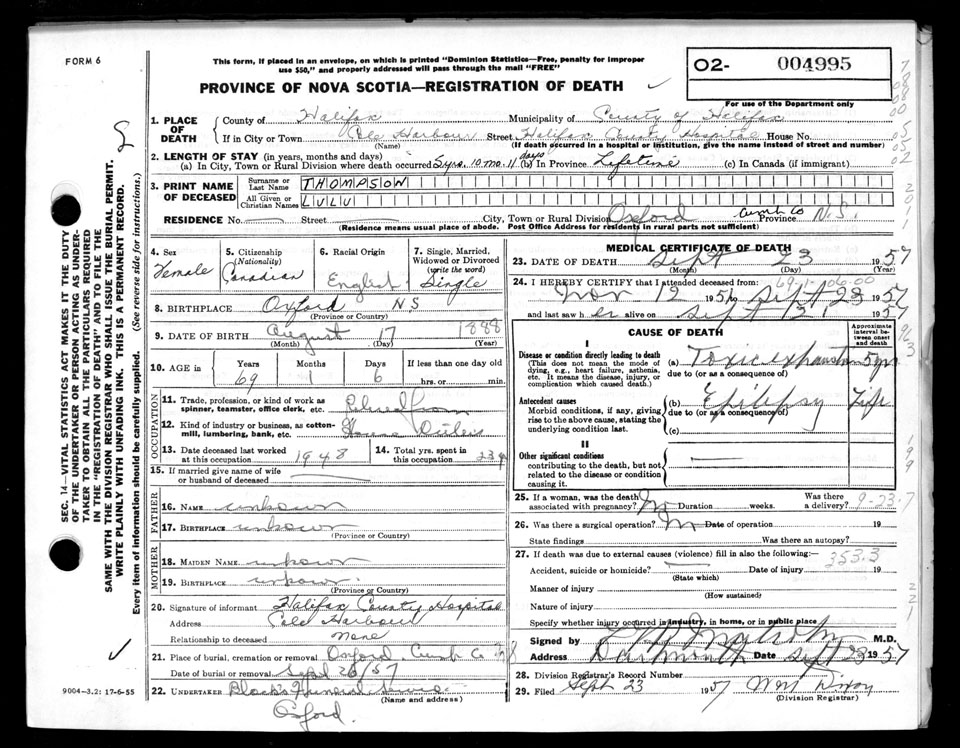 FORM 6
This form, if placed in an envelope, on which is printed "Dominion Statistics—Free, penalty for improper
use $50," and properly addressed will pass through the mail "FREE"
PROVINCE OF NOVA SCOTIA—REGISTRATION OF DEATH
O2- 004995
For use of the Department only
1. PLACE OF DEATH
County of Halifax Municipality of County of Halifax
If in City or Town Cole Harbour Street Halifax County Hospital House No.
(Name) (If death occurred in a hospital or institution, give the name instead of street and number)
2. LENGTH OF STAY (in years, months and days)
(a) In City, Town or Rural Division where death occurred 5 yrs. 10 mo. 11 days (b) In Province Lifetime (c) In Canada (if immigrant)
3. PRINT NAME OF DECEASED
Surname or Last Name THOMPSON
All Given or Christian Names LULU
RESIDENCE No. Street City, Town or Rural Division Oxford Cumb Co Province N.S.
(Residence means usual place of abode. Post Office Address for residents in rural parts not sufficient)
4. Sex
Female
5. Citizenship
(Nationality)
Canadian
6. Racial Origin
English
7. Single, Married,
Widowed or Divorced
(write the word)
Single
8. BIRTHPLACE Oxford N S
(Province or Country)
9. DATE OF BIRTH August 17 1888
(Month) (Day) (Year)
10. AGE in Years Months Days If less than one day
69 1 6 hrs. or min.
OCCUPATION
11. Trade, profession, or kind of work as
spinner, teamster, office clerk, etc. Retired from
12. Kind of industry or business, as cotton-
mill, lumbering, bank, etc. House Duties
13. Date deceased last worked
at this occupation 1948
14. Total yrs. spent in
this occupation 23 y
15. If married give name of wife
or husband of deceased
FATHER
16. NAME unknown
17. BIRTHPLACE unknown
(Province or Country)
MOTHER
18. MAIDEN NAME unknown
19. BIRTHPLACE unknown
(Province or Country)
20. Signature of informant Halifax County Hospital
Address Cole Harbour
Relationship to deceased none
21. Place of burial, cremation or removal Oxford Cumb Co N S
Date of burial or removal Sept 26/57
22. UNDERTAKER Black's Funeral Service
(Name and address)
Oxford.
MEDICAL CERTIFICATE OF DEATH
23. DATE OF DEATH Sept 23 1957
(Month) (Day) (Year)
24. I HEREBY CERTIFY that I attended deceased from:
69-1-06-00
Nov 12 1951 to Sept 23 1957
and last saw her alive on Sept 1957
CAUSE OF DEATH
Approximate interval between onset and death
I
Disease or condition directly leading to death
(This does not mean the mode of dying, e.g., heart failure, asthenia, etc. It means the disease, injury, or complication which caused death.)
(a) Toxic exhaustion 5 yr
due to (or as a consequence of)
Antecedent causes
Morbid conditions, if any, giving rise to the above cause, stating the underlying condition last.
(b) Epilepsy Life
due to (or as a consequence of)
(c)
II
Other significant conditions
contributing to the death, but not related to the disease or condition causing it.
25. If a woman, was the death
associated with pregnancy? No Duration weeks. Was there a delivery?
9-23-7
26. Was there a surgical operation? No Date of operation 19
State findings Was there an autopsy?
27. If death was due to external causes (violence) fill in also the following:
353.3
Accident, suicide or homicide? Date of injury 19
(State which)
Manner of injury
(How sustained)
Nature of injury
Specify whether injury occurred in industry, in home, or in public place
Signed by M.D.
Address Dartmouth Date Sept 23 1957
28. Division Registrar's Record Number
29. Filed Sept 23 1957 Dixon
(Division Registrar)
SEC. 14—VITAL STATISTICS ACT MAKES IT THE DUTY
OF THE UNDERTAKER OR PERSON ACTING AS UNDER-
TAKER TO OBTAIN ALL THE PARTICULARS REQUIRED
IN THE "REGISTRATION OF DEATH" AND TO FILE THE
SAME WITH THE DIVISION REGISTRAR WHO SHALL ISSUE THE BURIAL PERMIT.
WRITE PLAINLY WITH UNFADING INK. THIS IS A PERMANENT RECORD.
Every item of information should be carefully supplied. (See reverse side for instructions.)
9004-3.2: 17-6-55